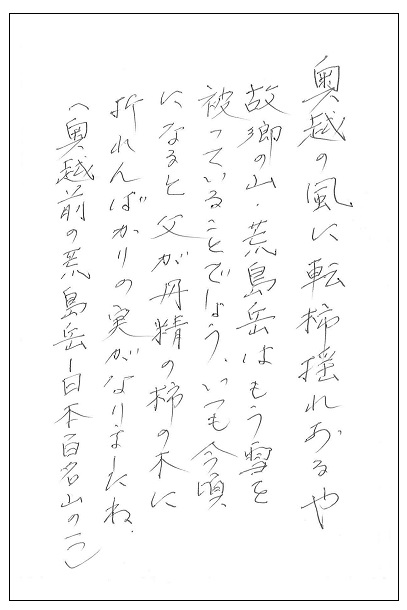 奥越の風に転柿揺れおるや
故郷の山・荒島岳はもう雪を
被っていることでしょう、いつも今頃
になると父が丹精の柿の木に
折れんばかりの実がなりましたね.
(奥越前の荒島岳ー日本百名山の一つ)